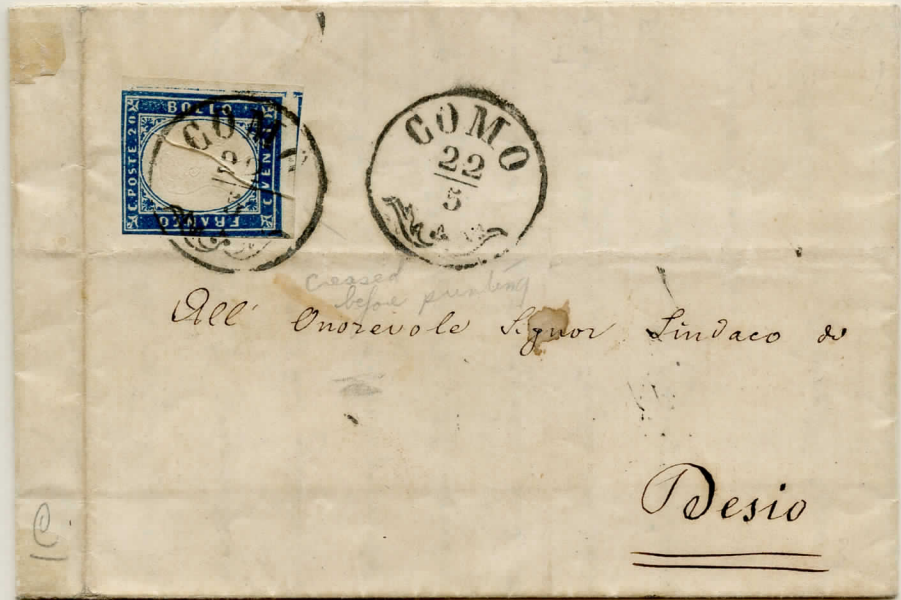 BOLLO
C. POSTE 20
C. VEN
FRANCO
COMO
22
5
COMO
22
5
creased
before printing
All' Onorevole Signor Sindaco di
Desio
C